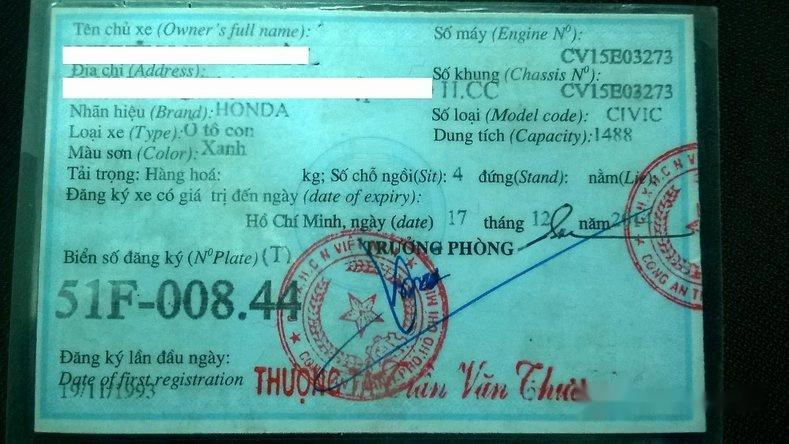 Tên chủ xe (Owner's full name):
Số máy (Engine Nº):
CV15E03273
Địa chỉ (Address):
Số khung (Chassis Nº):
H.CC
CV15E03273
Nhãn hiệu (Brand): HONDA
Số loại (Model code): CIVIC
Loại xe (Type): Ô tô con
Dung tích (Capacity): 1488
Màu sơn (Color): Xanh
Tải trọng: Hàng hoá: kg; Số chỗ ngồi(Sit): 4 đứng(Stand): nằm(Lie)
Đăng ký xe có giá trị đến ngày (date of expiry):
Hồ Chí Minh, ngày (date) 17 tháng 12 năm
Biển số đăng ký (NºPlate) (T)
TRƯỞNG PHÒNG
51F-008.44
Đăng ký lần đầu ngày:
Date of first registration
19/11/1993
THƯỢNG TÁ Trần Văn